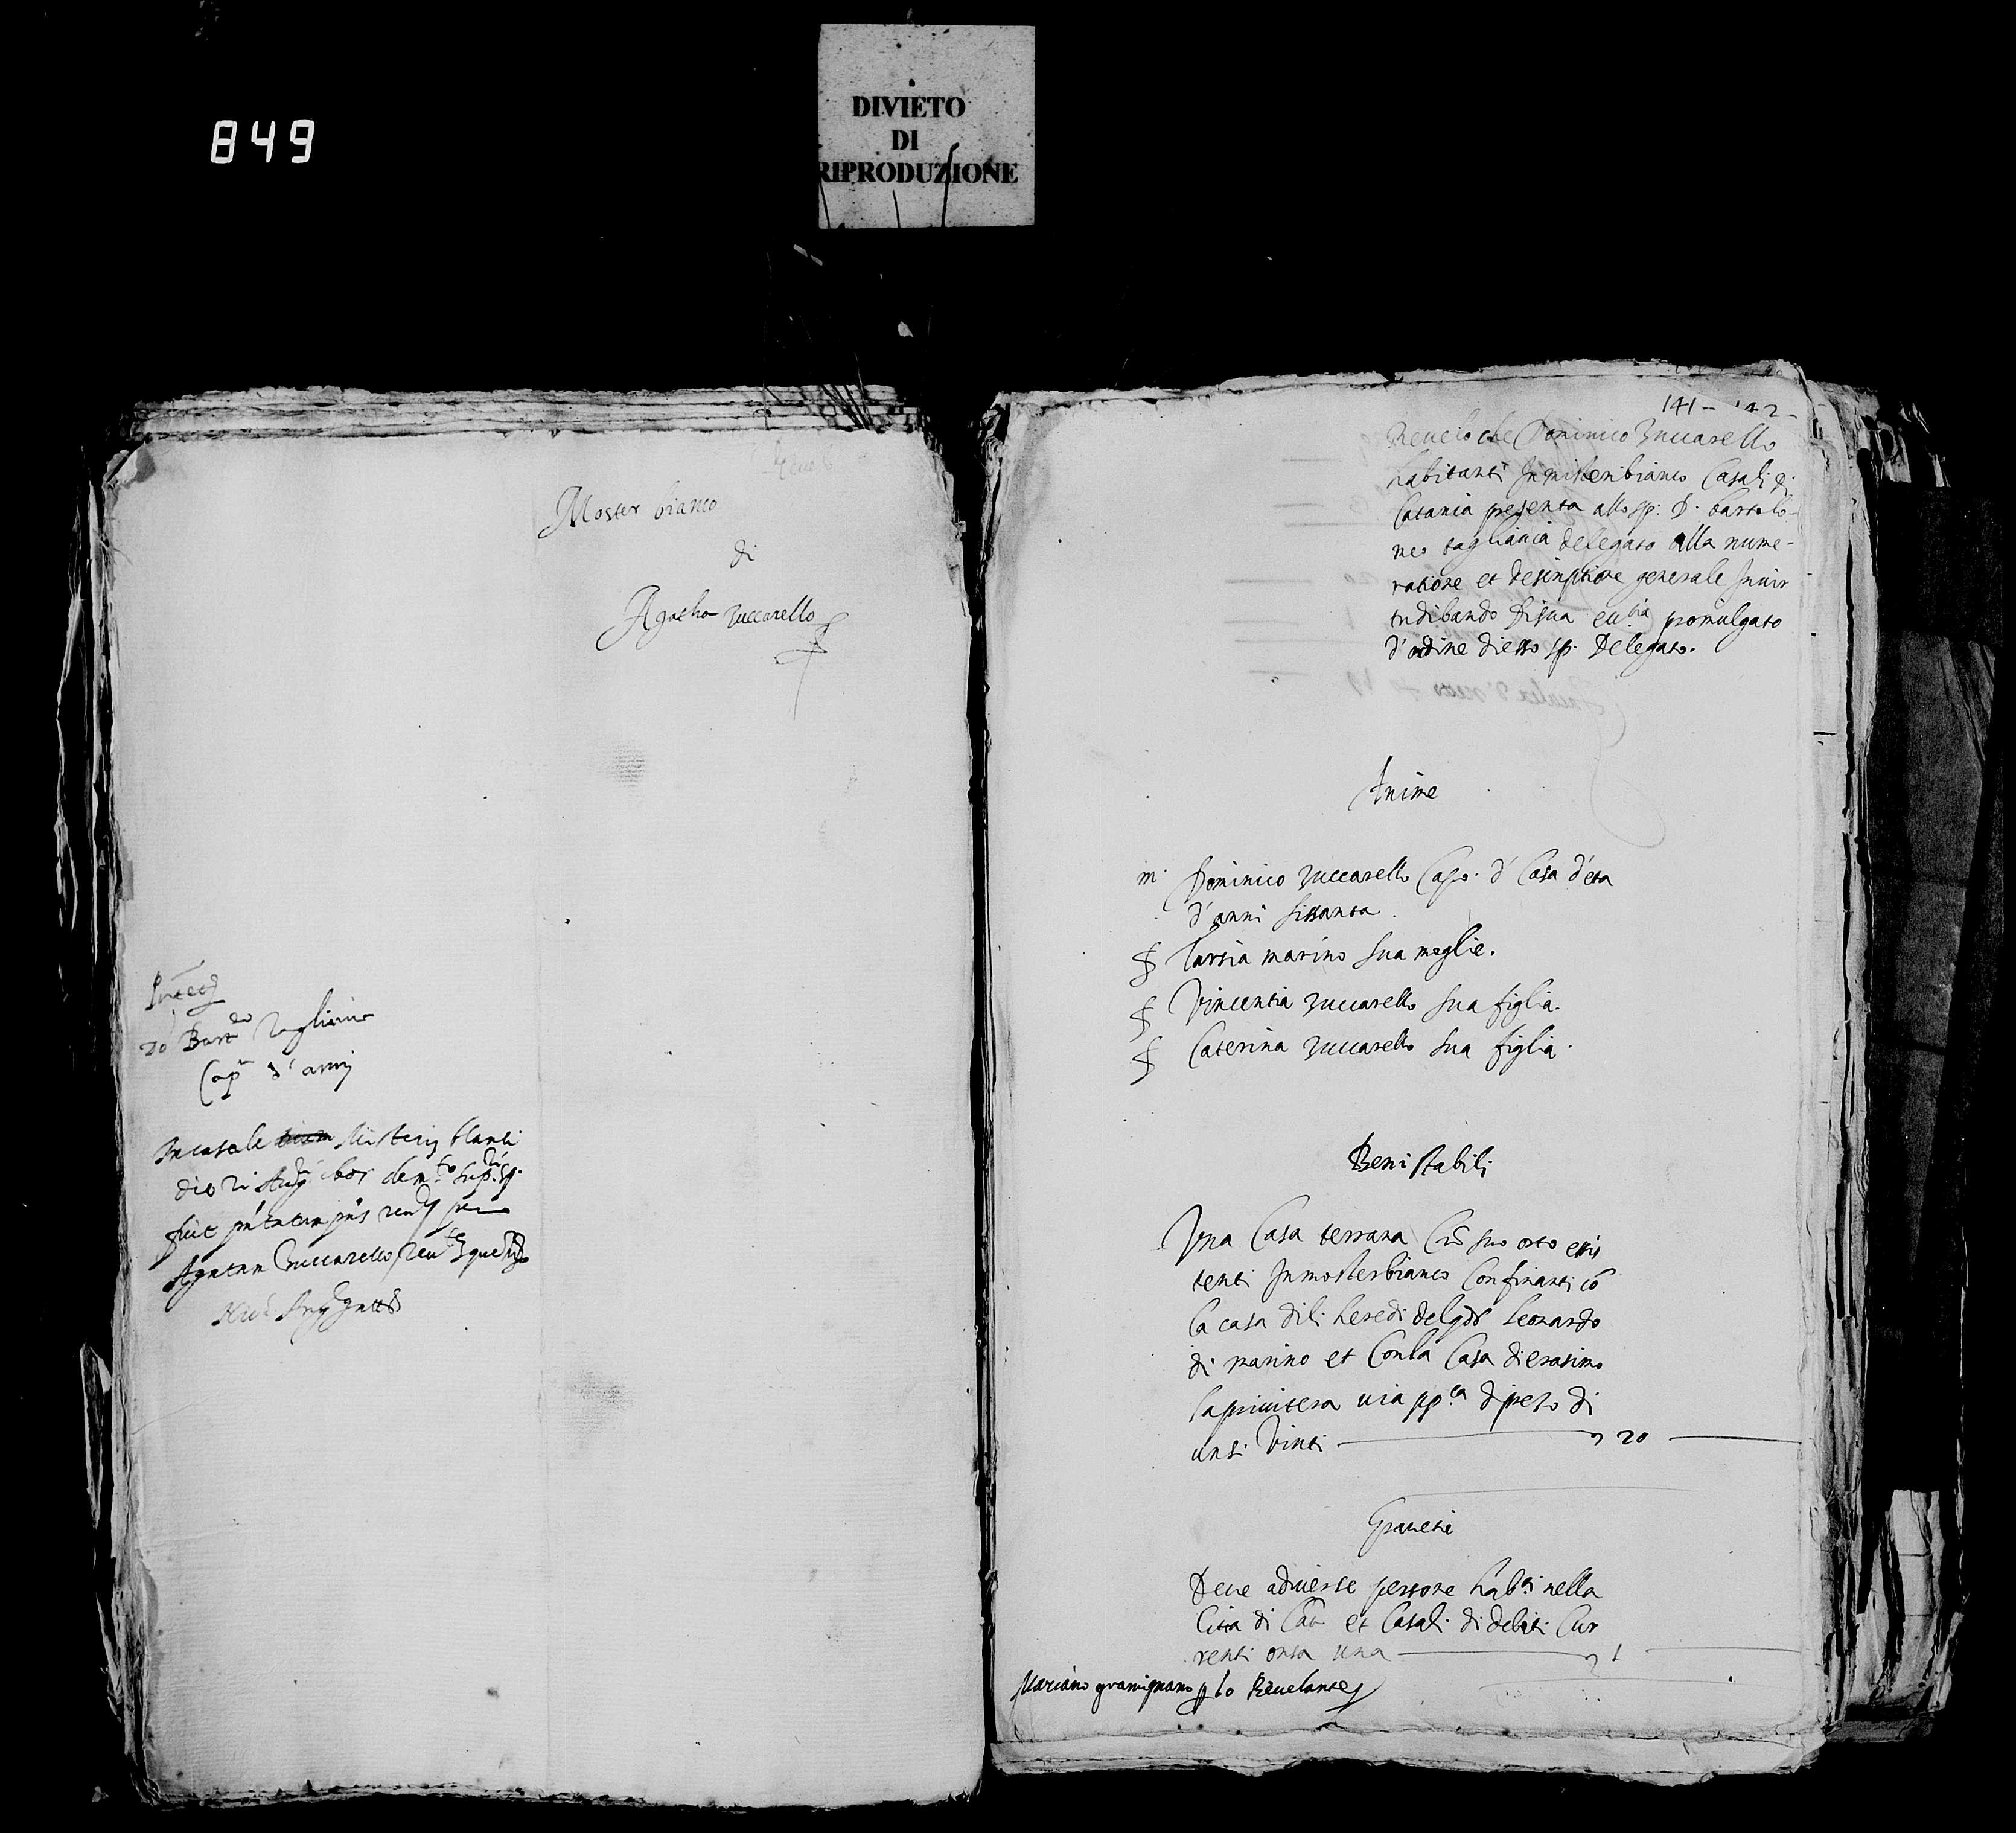 849
DIVIETO
DI
RIPRODUZIONE
Moster bianco
di
Agatha Zuccarello
Capn d'armi
In casale Misterij blanci
fuit
Agatam Zuccarello
141 - 142 -
Revelo che Dominico Zuccarello
habitanti In misteribianco Casali di
Catania presenta allo sp: D. bartolo-
meo tagliavia delegato alla nume-
ratione et descriptione generale In vir
tu di bando di sua ecc.tia promulgato
d'ordine di esso sp. Delegato.
Anime
m. Dominico Zuccarello Capo d' Casa d'eta
d'anni sissanta
f Tarsia marino sua moglie.
f Vincentia Zuccarello sua figlia.
f Caterina Zuccarello sua figlia.
Beni stabili
Una Casa terrana Cu suo orto exis
tenti In mosterbianco Confinanti co
la casa di li heredi del qdo Leonardo
di marino et Con la Casa di erasimo
la privitera via pp.ca d prezo di
unsi Vinti 20
Gravezi
Deve a diverse persone hab.ti nella
Cita di Cat.a et Casali di debiti Cur
renti onsa una 1
Mariano gramignano p lo Revelante